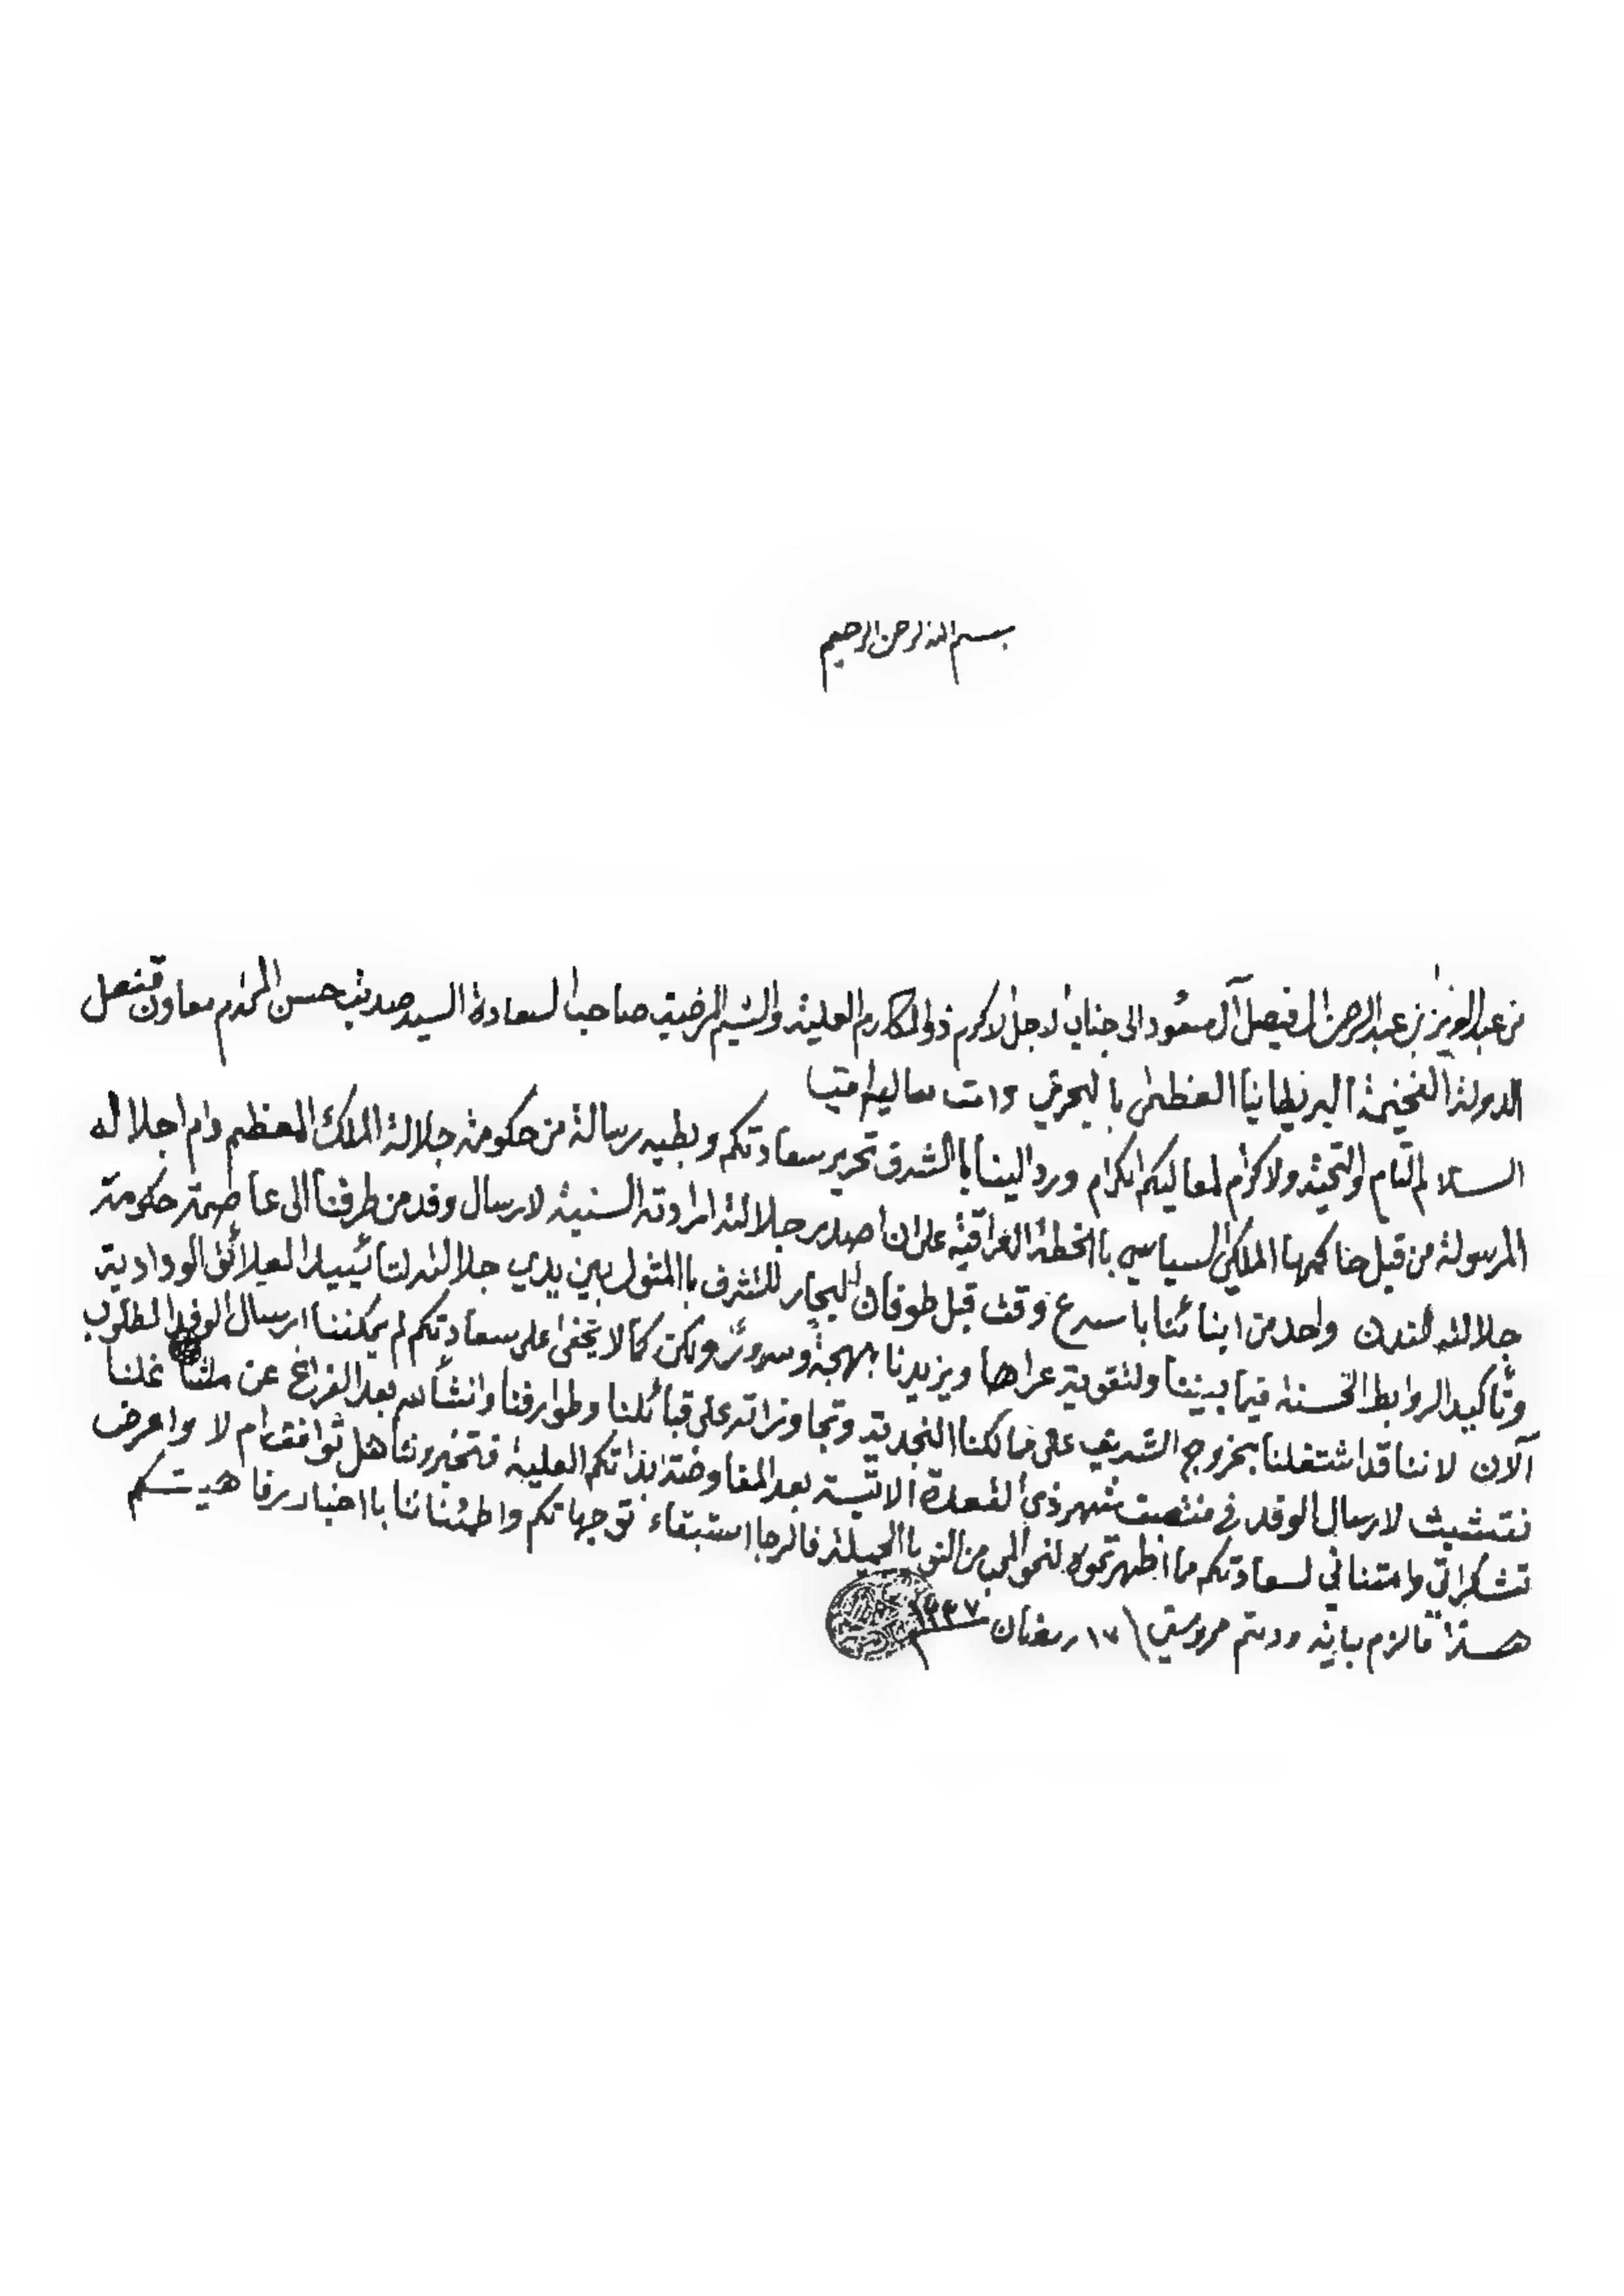 بسم الله الرحمن الرحيم
من عبد العزيز بن عبد الرحمن ال فيصل آل سعود الى جناب الاجل الاكرم ذو المكارم العلية والشيم المرضية صاحب السعادة السيد صديق حسن المحترم معاون قنصل
الدولة الفخيمة البريطانيا العظمى با ليحرين دامت معاليه امين
السلام التام والتحية والاكرام لمعاليكم الكرام ورد الينا باالشرف تحرير سعادتكم وبطيه رسالة من حكومة جلالة الملك المعظم دام اجلاله
المرسولة من قبل حاكمها الملكي السياسي باالخطة العراقية على ان اصدر جلالته ارادته السنية لارسال وفد من طرفنا الى عاصمة حكومة
جلالته لندن واحد من ابنائنا باسرع وقت قبل طوفان البحار للتشرف باالمثول بين يدي جلالته لتأييد العلائق الودادية
وتأكيد الروابط الحسنة فيما بيننا ولتقوية عراها ويزيدنا بهجة وسرور ولكن كما لا يخفى على سعادتكم لم يمكننا ارسال الوفد المطلوب
آلان لاننا قد اشتغلنا بخروج الشريف على ممالكنا النجدية وتجاوزاته على قبائلنا وطوارفنا وانشأ الله بعد الفراغ عن غلنا
نتشبث لارسال الوفد في منتصف شهر ذي القعدة الاتية بعد المفاوضة بذاتكم العلية فتخبروننا هل توافق ام لا واعرض
تشكراتي وامتناني لسعادتكم ما اظهرتموه لنحو المحب من النوايا الجميلة فالرجا استبقاء توجهاتكم واطمئناننا با اخبار رفاهيتكم
هذا مالزم بيانه ودمتم محروسين ١٧ رمضان ١٣٣٧